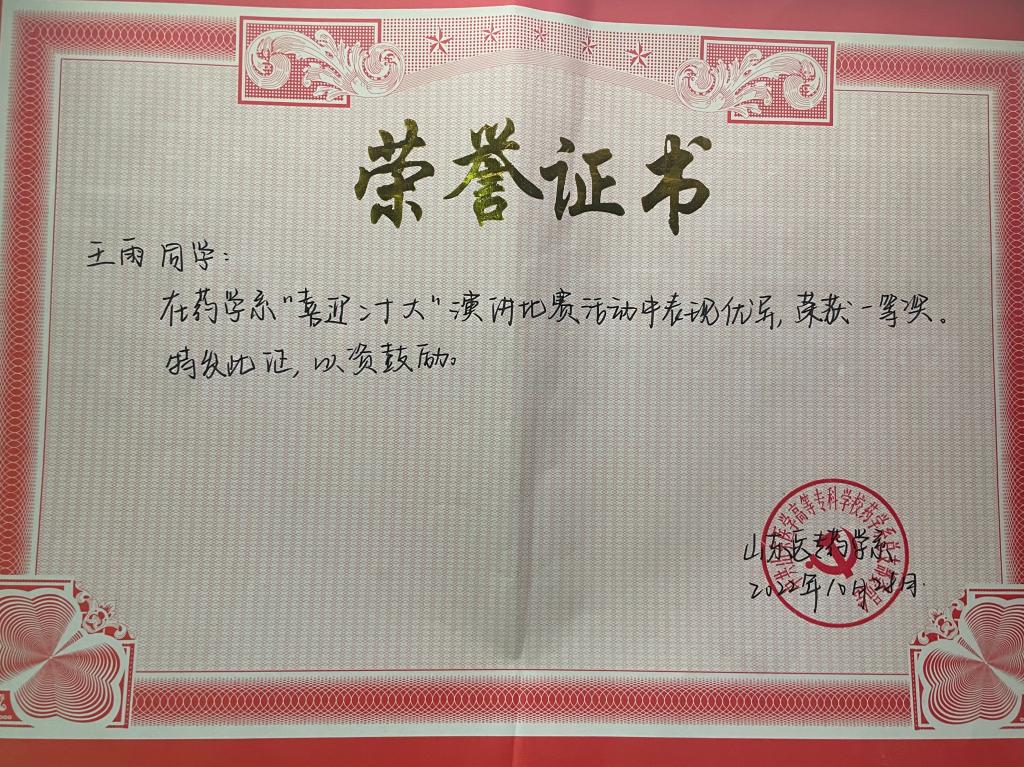 荣誉证书
王雨 同学:
在药学系“喜迎二十大”演讲比赛活动中表现优异,荣获一等奖。
特发此证,以资鼓励。
山东医专药学系
2022年10月